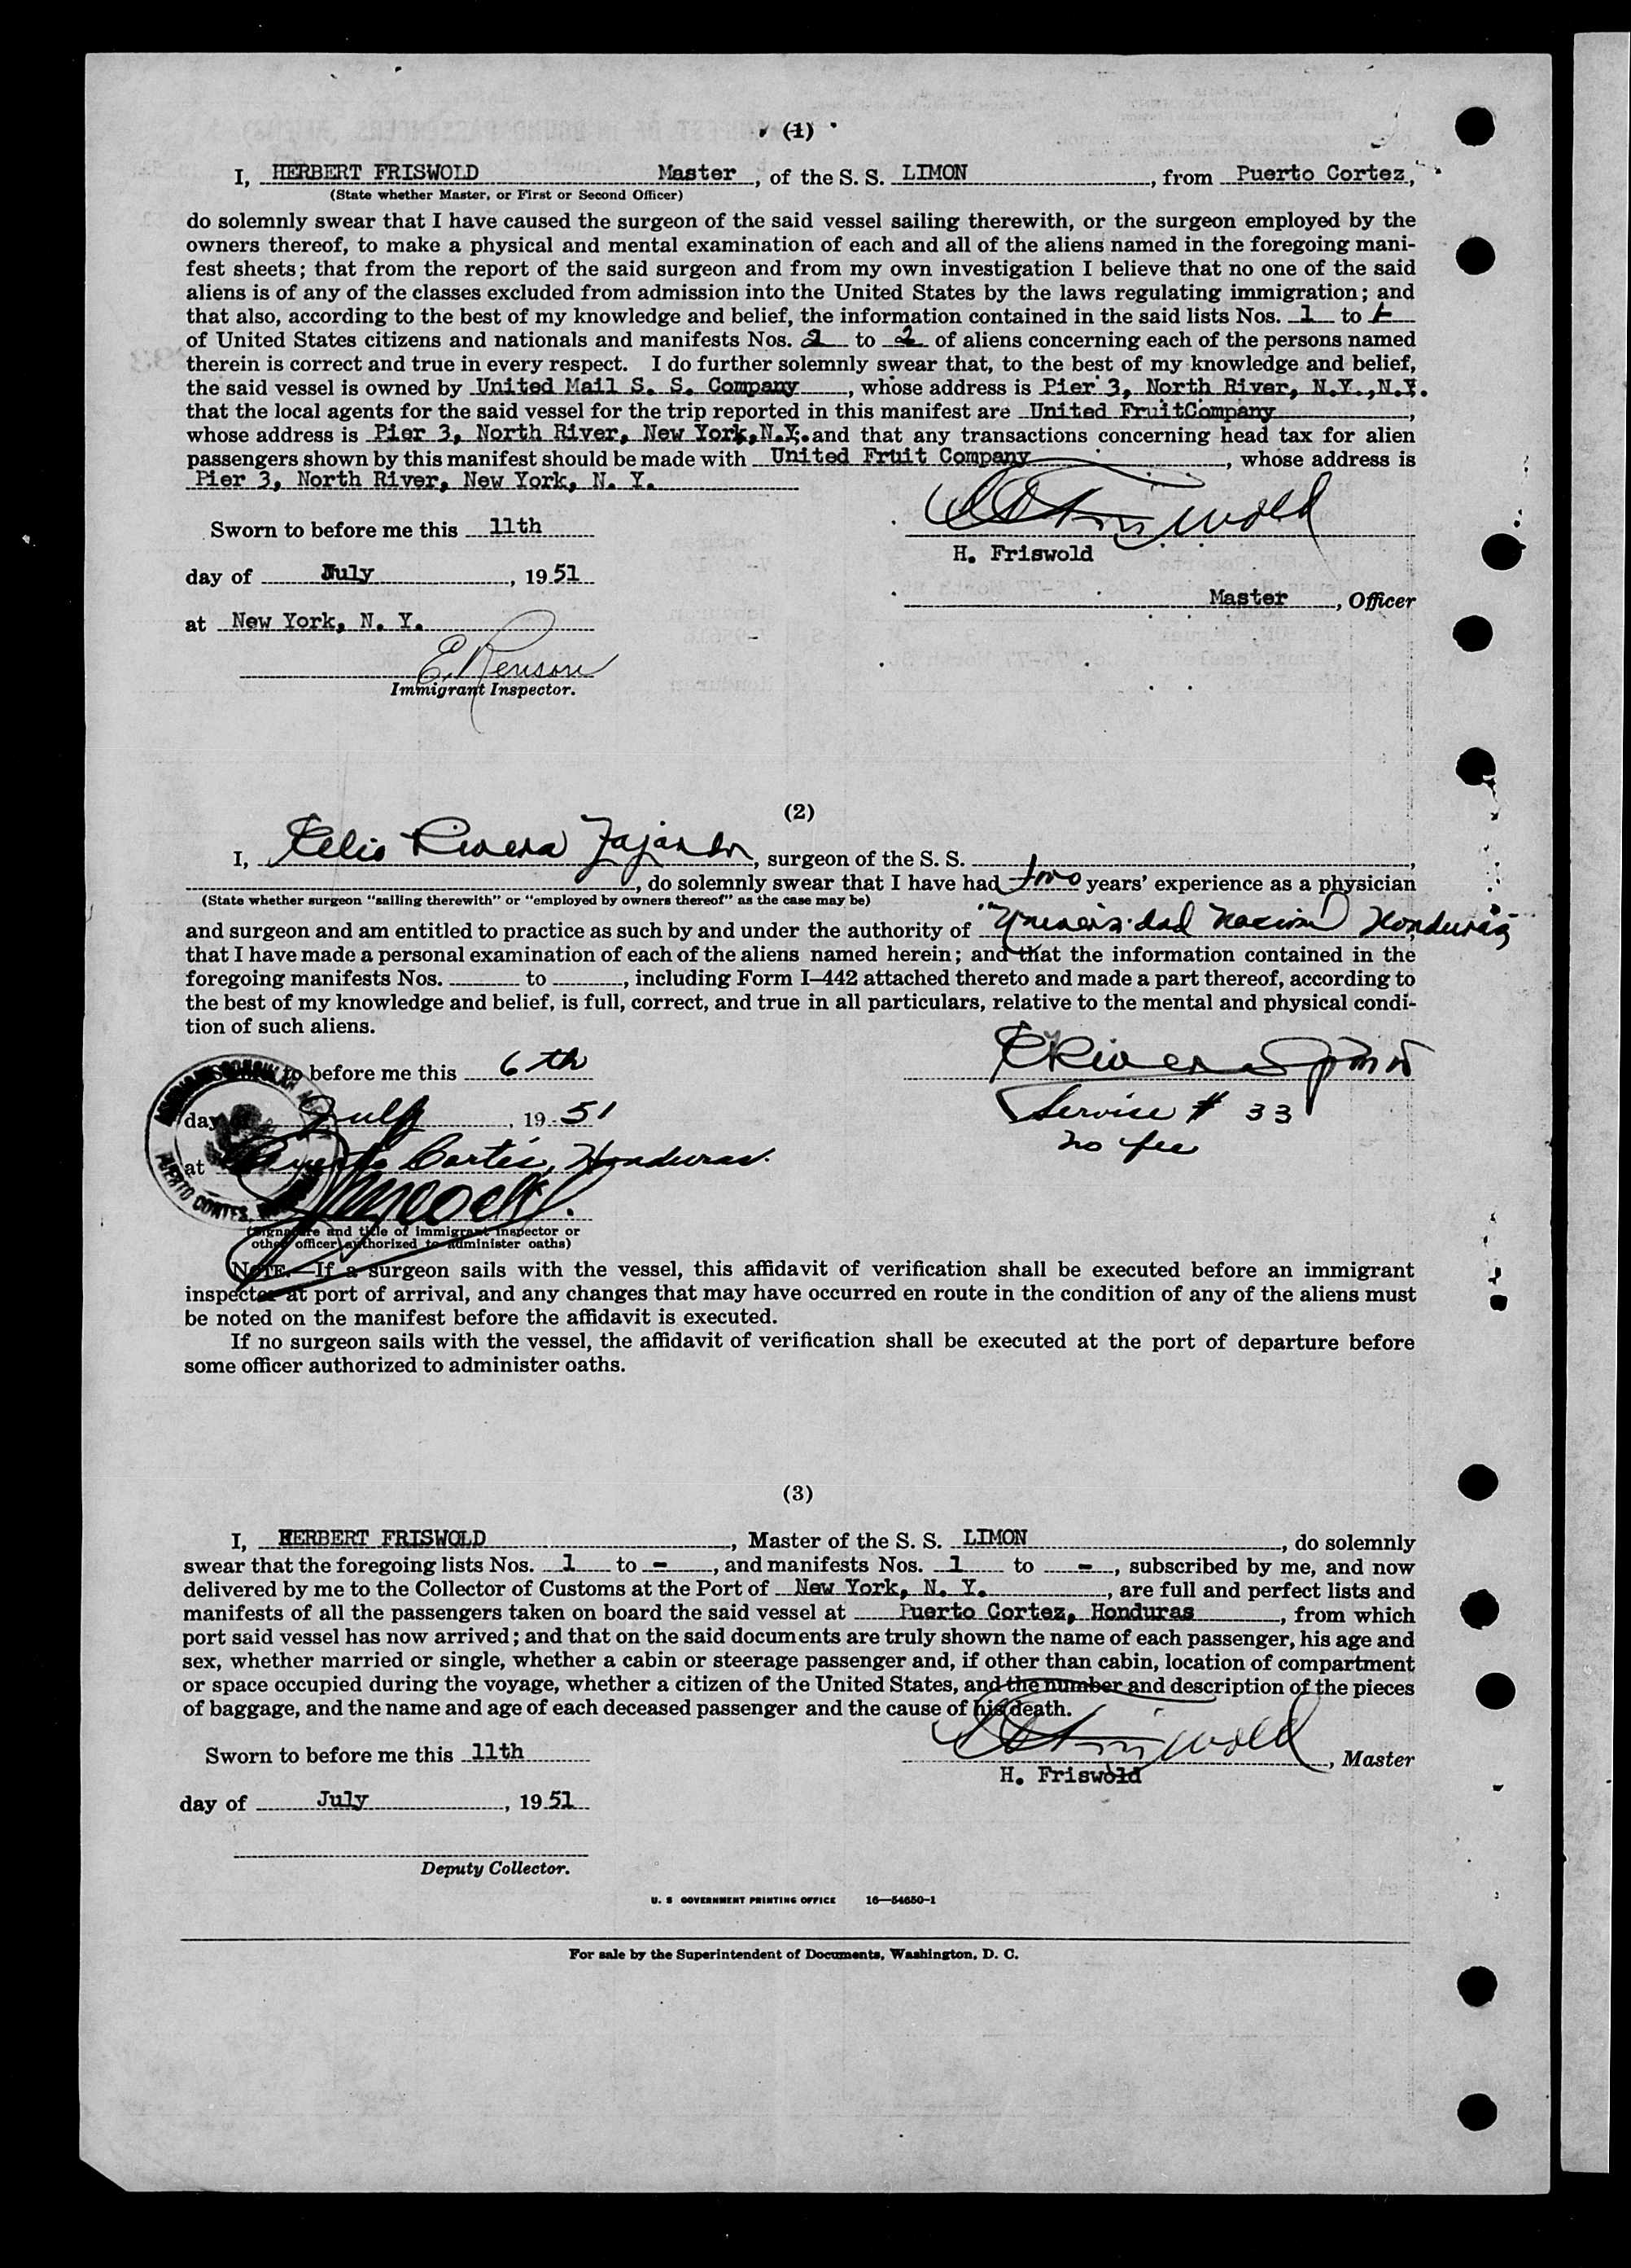 (1)
I, HERBERT FRISWOLD Master, of the S. S. LIMON, from Puerto Cortez,
(State whether Master, or First or Second Officer)
do solemnly swear that I have caused the surgeon of the said vessel sailing therewith, or the surgeon employed by the
owners thereof, to make a physical and mental examination of each and all of the aliens named in the foregoing mani-
fest sheets; that from the report of the said surgeon and from my own investigation I believe that no one of the said
aliens is of any of the classes excluded from admission into the United States by the laws regulating immigration; and
that also, according to the best of my knowledge and belief, the information contained in the said lists Nos. 1 to
of United States citizens and nationals and manifests Nos. 2 to 2 of aliens concerning each of the persons named
therein is correct and true in every respect. I do further solemnly swear that, to the best of my knowledge and belief,
the said vessel is owned by United Mail S. S. Company, whose address is Pier 3, North River, N.Y.,N.Y.
that the local agents for the said vessel for the trip reported in this manifest are United FruitCompany,
whose address is Pier 3, North River, New York,N.Y. and that any transactions concerning head tax for alien
passengers shown by this manifest should be made with United Fruit Company, whose address is
Pier 3, North River, New York, N. Y.
Sworn to before me this 11th
H. Friswold
day of July, 1951
Master, Officer
at New York, N. Y.
Immigrant Inspector.
(2)
I, Celio Rivera Fajardo, surgeon of the S. S.
, do solemnly swear that I have had two years' experience as a physician
(State whether surgeon "sailing therewith" or "employed by owners thereof" as the case may be)
and surgeon and am entitled to practice as such by and under the authority of Universidad Nacional Honduras
that I have made a personal examination of each of the aliens named herein; and that the information contained in the
foregoing manifests Nos. to , including Form I-442 attached thereto and made a part thereof, according to
the best of my knowledge and belief, is full, correct, and true in all particulars, relative to the mental and physical condi-
tion of such aliens.
to before me this 6th
Service # 33
day July, 1951
no fee
at Puerto Cortés, Honduras.
PUERTO CORTES,
(Signature and title of immigrant inspector or
other officer authorized to administer oaths)
NOTE.—If a surgeon sails with the vessel, this affidavit of verification shall be executed before an immigrant
inspector at port of arrival, and any changes that may have occurred en route in the condition of any of the aliens must
be noted on the manifest before the affidavit is executed.
If no surgeon sails with the vessel, the affidavit of verification shall be executed at the port of departure before
some officer authorized to administer oaths.
(3)
I, HERBERT FRISWOLD, Master of the S. S. LIMON, do solemnly
swear that the foregoing lists Nos. 1 to -, and manifests Nos. 1 to -, subscribed by me, and now
delivered by me to the Collector of Customs at the Port of New York, N. Y., are full and perfect lists and
manifests of all the passengers taken on board the said vessel at Puerto Cortez, Honduras, from which
port said vessel has now arrived; and that on the said documents are truly shown the name of each passenger, his age and
sex, whether married or single, whether a cabin or steerage passenger and, if other than cabin, location of compartment
or space occupied during the voyage, whether a citizen of the United States, and the number and description of the pieces
of baggage, and the name and age of each deceased passenger and the cause of his death.
Sworn to before me this 11th
, Master
H. Friswold
day of July, 1951
Deputy Collector.
U. S GOVERNMENT PRINTING OFFICE 16—54650-1
For sale by the Superintendent of Documents, Washington, D. C.